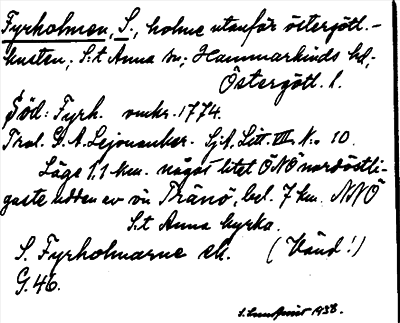 Fyrholmen, S., holme utanför östergötl.-
kusten; S:t Anna sn; Hammarkinds hd;
Östergötl. l.
Söd: Fyrh. omkr. 1774.
Trol. G. A. Lejonanker. Sj. A. Litt. III No 10.
Läge 1,1 km. något litet ÖNÖ nordöstli-
gaste udden av ön Tränö, bel. 7 km. NNÖ
S:t Anna kyrka.
S. Fyrholmarne ek. (Vänd!)
G. 46.
S. Lundqvist 1938.